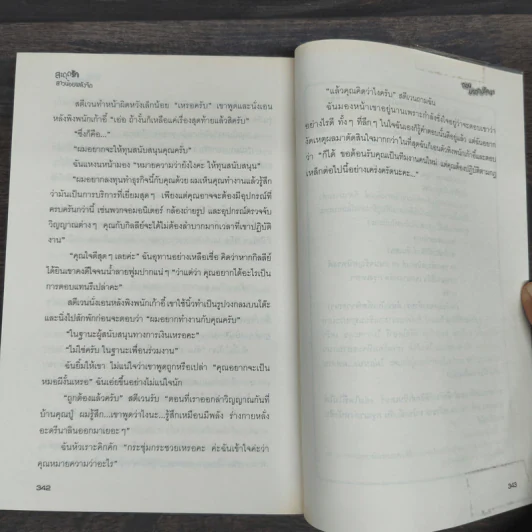 สะดุดรัก
สตีเวนทำหน้าผิดหวังเล็กน้อย "เหรอครับ" เขาพูดและนั่งเอน
หลังพิงพนักเก้าอี้ "เอ่อ ถ้างั้นก็เหลือแค่เรื่องสุดท้ายแล้วสิครับ"
"ซึ่งก็คือ..."
"ผมอยากจะให้ทุนสนับสนุนคุณครับ"
ฉันแหงนหน้ามอง "หมายความว่ายังไงคะ ให้ทุนสนับสนุน"
"ผมอยากลงทุนทำธุรกิจนี้กับคุณด้วย ผมเห็นคุณทำงานแล้วรู้สึก
ว่ามันเป็นการบริการที่เยี่ยมสุดๆ เพียงแต่คุณอาจจะต้องมีอุปกรณ์ที่
ครบครันกว่านี้ เช่นพวกจอมอนิเตอร์ กล้องถ่ายรูป และอุปกรณ์ตรวจจับ
วิญญาณต่างๆ คุณกับกิลลีย์จะได้ไม่ต้องลำบากมากเวลาที่เข้าปฏิบัติ
งาน"
"คุณใจดีสุดๆ เลยค่ะ" ฉันอุทานอย่างเหลือเชื่อ คิดว่าหากกิลลีย์
ได้ยินเขาคงดีใจจนน้ำลายฟูมปากแน่ๆ "ว่าแต่ว่า คุณอยากได้อะไรเป็น
การตอบแทนรึเปล่าคะ"
สตีเวนนั่งเอนหลังพิงพนักเก้าอี้ เขาใช้นิ้วทำเป็นรูปวงกลมบนโต๊ะ
และนิ่งไปสักพักก่อนจะตอบว่า "ผมอยากทำงานกับคุณครับ"
"ในฐานะผู้สนับสนุนทางการเงินเหรอคะ"
"ไม่ใช่ครับ ในฐานะเพื่อนร่วมงาน"
ฉันยิ้มให้เขา ไม่แน่ใจว่าเขาพูดถูกหรือเปล่า "คุณอยากจะเป็น
หมอผีงั้นเหรอ" ฉันเอ่ยขึ้นอย่างไม่แน่ใจนัก
"ถูกต้องแล้วครับ" สตีเวนรับ "ตอนที่เราออกล่าวิญญาณกันที่
บ้านคุณปู่ ผมรู้สึก...เขาพูดว่าไงนะ...รู้สึกเหมือนมีพลัง ร่างกายหลั่ง
อะดรีนาลินออกมาเยอะๆ"
ฉันหัวเราะคิกคัก "กระชุ่มกระชวยเหรอคะ ค่ะฉันเข้าใจค่ะว่า
คุณหมายความว่าอะไร"
342
"แล้วคุณคิดว่าไงครับ" สตีเวนถามฉัน
ฉันมองหน้าเขาอยู่นานเพราะกำลังชั่งใจอยู่ว่าจะตอบเขาว่า
อย่างไรดี ทั้งๆ ที่ลึกๆ ในใจฉันเองก็รู้คำตอบนั้นดีอยู่แล้ว แต่ฉันอยาก
งัดเหตุผลมาตัดสินใจมากกว่า ในที่สุดฉันก็เอนตัวพิงพนักเก้าอี้และตอบ
ว่า "ก็ได้ ขอต้อนรับคุณเป็นทีมงานคนใหม่ แต่คุณต้องปฏิบัติตามกฎ
เหล็กต่อไปนี้อย่างเคร่งครัดนะคะ..."
343